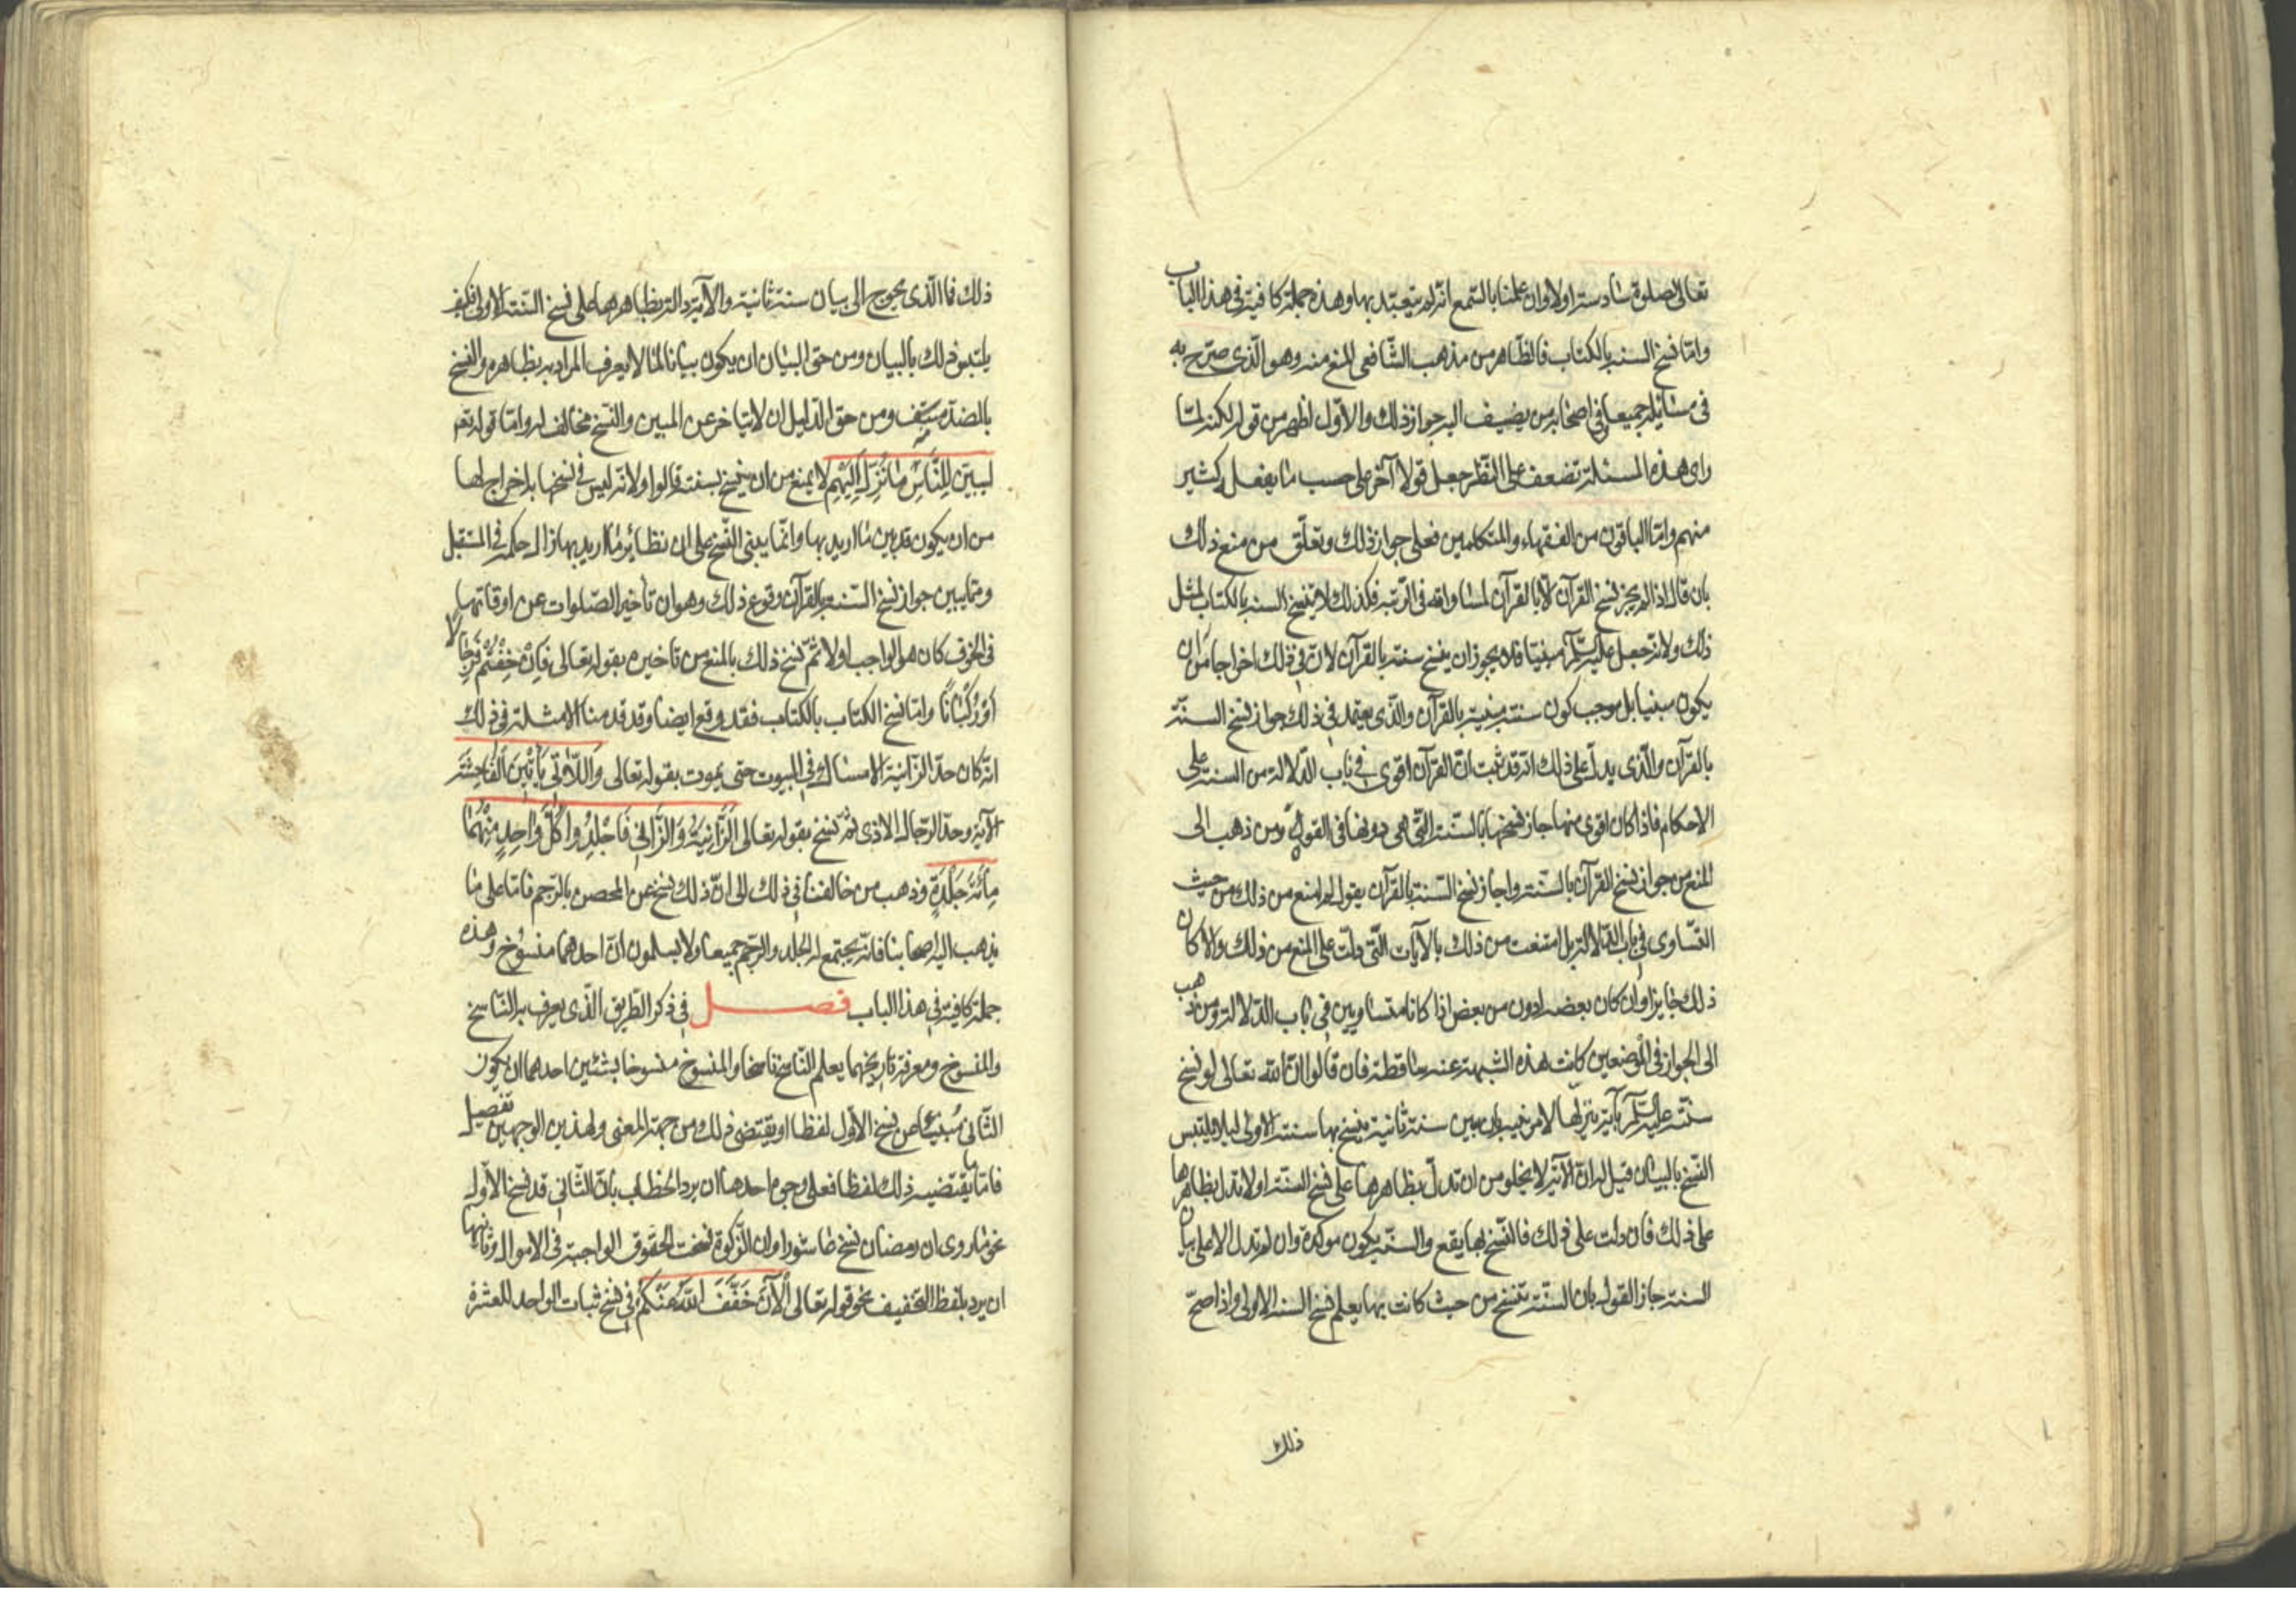 تعالى لصلوة سادسة اولا وان علمنا بالسمع انه لم يتعبد بها وهذه جملة كافية في هذا الباب
وامّا نسخ السنه بالكتاب فالظّاهر من مذهب الشّافعي المنع منه وهو الّذي صرّح به
في رسايله جميعا وفي اصحابه من يضيف اليه جواز ذلك والاوّل اظهر من قوله لكنه لمّا
راى هذه المسئلة تضعف على النّظر جعل قولا آخر على حسب ما يفعل كثير
منهم وامّا الباقون من الفقهاء والمتكلمين فعلى جواز ذلك وتعلّق من منع ذلك
بان قال اذا لم يجز نسخ القرآن الّا بالقرآن لمساواته في الرّتبه فكذلك لا ينسخ السنه بالكتاب لمثل
ذلك ولانه جعل عليه السّلام مبيّنا فلا يجوز ان ينسخ سنته بالقرآن لانّ في ذلك اخراجا من ان
يكون مبينا بل يوجب كون سنته مبينة بالقرآن والّذي يعتمد في ذلك جواز نسخ السنّة
بالقرآن والّذي يدلّ على ذلك انّه قد ثبت انّ القرآن اقوى في باب الدّلالة من السنة على
الاحكام فاذا كان اقوى منها جاز نسخها به السّنّة الّتي هي دونها في القوّة ومن ذهب الى
المنع من جواز نسخ القرآن بالسّنّة واجاز نسخ السّنة بالقرآن يقول لم امنع من ذلك من حيث
التّساوى في باب الدّلالة بل امتنعت من ذلك بالآيات الّتي دلّت على المنع من ذلك والّا كان
ذلك جايزا وان كان بعضه ادون من بعض اذا كانا متساويين في باب الدّلالة ومن ذهب
الى الجواز في الموضعين كانت هذه الشّبهة عنه ساقطة فان قالوا انّ الله تعالى لو نسخ
سنّته عليه السّلام بآية ينزلها لامر نبيه بان يبين سنة ثانية ينسخ بها سنته الاولى ليلا يلتبس
النّسخ بالبيان قيل له انّ الآية لا يخلو من ان تدلّ بظاهرها على نسخ السنّة اولا تدل بظاهرها
على ذلك فان دلّت على ذلك فالنّسخ بها يقع والسنّة يكون موكدة وان لم تدل الا على بيان
السنة جاز القول بان السنّة تنسخ من حيث كانت بها يعلم نسخ السنه الاولى واذا صحّ
ذلك
ذلك فما الّذي يحوج الى بيان سنة ثانية والآية دالة بظاهرها على نسخ السّنة الاولى فكيف
يلتبس ذلك بالبيان ومن حقّ البيان ان يكون بيانا لما لا يعرف المراد به بظاهره والنسخ
بالضدّ منه ومن حق الدّليل ان لا يتاخر عن المبين والنّسخ مخالف له وامّا قوله تعم
لِيبيّن لِلنّاسِ مَا نُزِّلَ اِلَيْهِم لا يمنع من ان ينسخ بسنته قالوا ولانّه ليس في نسخها به اخراج لها
من ان يكون قد بين ما اريد بها وانّما يبنى النّسخ على ان نظائر ما اريد بها زال حكمه في المستقبل
وممّا يبين جواز نسخ السّنة بالقرآن وقوع ذلك وهو ان تأخير الصّلوات عن اوقاتها
في الخوف كان هو الواجب اولا ثمّ نسخ ذلك بالمنع من تاخيره بقوله تعالى فَاِنْ خِفْتُمْ فَرِجَالًا
اَوْ رُكْبَانًا وامّا نسخ الكتاب بالكتاب فقد وقع ايضا وقد قدمنا الامثلة في ذلك
انّه كان حدّ الزّانية الامساك في البيوت حتى يموت بقوله تعالى وَاللّاتي يَأْتِينَ الْفَاحِشَةَ
الآية وحدّ الرّجال الاذى ثمّ نسخ بقوله تعالى الزَّانِيَةُ وَالزَّانِي فَاجْلِدُوا كُلَّ وَاحِدٍ مِنْهُمَا
مِائَةَ جَلْدَةٍ وذهب من خالفنا في ذلك الى انّ ذلك نسخ عن المحصن بالرّجم فامّا على ما
يذهب اليه اصحابنا فانّه يجتمع له الجلد والرّجم جميعا ولا يسلمون انّ احدهما منسوخ وهذه
جملة كافية في هذا الباب فصل في ذكر الطّريق الّذي يعرف به النّاسخ
والمنسوخ ومعرفة تاريخهما يعلم النّاسخ ناسخا والمنسوخ منسوخا بشئين احدهما ان يكون
الثّاني مُنبئا عن نسخ الاوّل لفظا او يقتضى ذلك من جهة المعنى ولهذين الوجهين تفصيل
فامّا ما يقتضيه ذلك لفظا فعلى وجوه احدها ان يرد الخطاب بانّ الثّاني قد نسخ الاوّل
نحو ما روى ان رمضان نسخ عاشورا وان الزّكوة نسخت الحقوق الواجبة في الاموال وثانيها
ان يرد بلفظ التّخفيف نحو قوله تعالى اَلْآنَ خَفَّفَ اللّٰهُ عَنْكُمْ في نسخ ثبات الواحد للعشرة